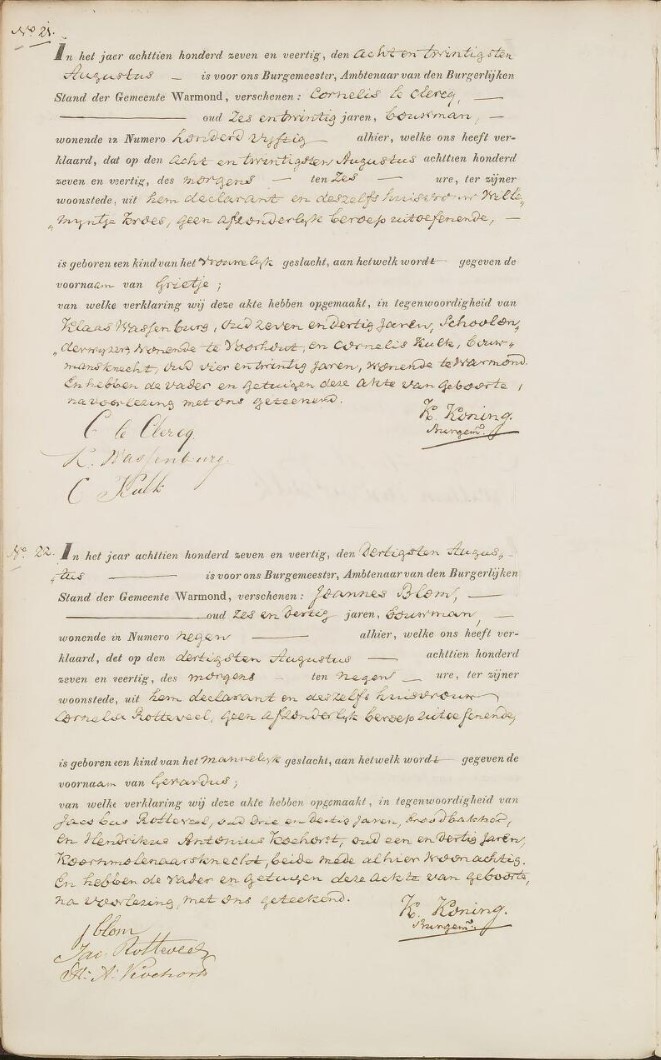 No. 21.
In het jaer achttien honderd zeven en veertig, den acht en twintigsten
Augustus — is voor ons Burgemeester, Ambtenaar van den Burgerlijken
Stand der Gemeente Warmond, verschenen: Cornelis le Clercq, —
— oud zes en twintig jaren, bouwman, —
wonende in Numero honderd vijftig — alhier, welke ons heeft ver-
klaard, dat op den acht en twintigsten Augustus achttien honderd
zeven en veertig, des morgens — ten zes — ure, ter zijner
woonstede, uit hem declarant en deszelfs huisvrouw Wille„
„myntje Kroes, geen afzonderlijk beroep uitoefenende, —
is geboren een kind van het vrouwelijk geslacht, aan hetwelk wordt — gegeven de
voornaam van Grietje;
van welke verklaring wij deze akte hebben opgemaakt, in tegenwoordigheid van
Klaas Wassenburg, oud zeven en dertig Jaren, Schoolon„
„derwyzer, wonende te Voorhout, en Cornelis Kulk, bouw„
mansknecht, oud vier en twintig Jaren, wonende te Warmond.
En hebben de vader en getuigen deze akte van geboorte,
na voorlezing met ons geteekend.
K. Koning.
Burgemr.
C le Clercq
K. Wassenburg.
C Kulk
No. 22.
In het jaar achttien honderd zeven en veertig, den dertigsten Augus„
„tus — is voor ons Burgemeester, Ambtenaar van den Burgerlijken
Stand der Gemeente Warmond, verschenen: Joannes Blom, —
— oud zes en dertig jaren, bouwman, —
wonende in Numero negen — alhier, welke ons heeft ver-
klaard, dat op den dertigsten Augustus — achttien honderd
zeven en veertig, des morgens — ten negen — ure, ter zijner
woonstede, uit hem declarant en deszelfs huisvrouw
Cornelia Rotteveel, geen afzonderlijk beroep uitoefenende,
is geboren een kind van het mannelijk geslacht, aan hetwelk wordt — gegeven de
voornaam van Gerardus;
van welke verklaring wij deze akte hebben opgemaakt, in tegenwoordigheid van
Jacobus Rotteveel, oud drie en dertig Jaren, broodbakker,
en Hendrikus Antonius Kochorst, oud een en dertig Jaren,
Koornmolenaarsknecht, beide mede alhier woonachtig.
En hebben de vader en getuigen deze ackte van geboorte,
na voorlezing, met ons geteekend.
K. Koning.
Burgemr.
J blom
Jac. Rotteveel
H: A: Kochorst